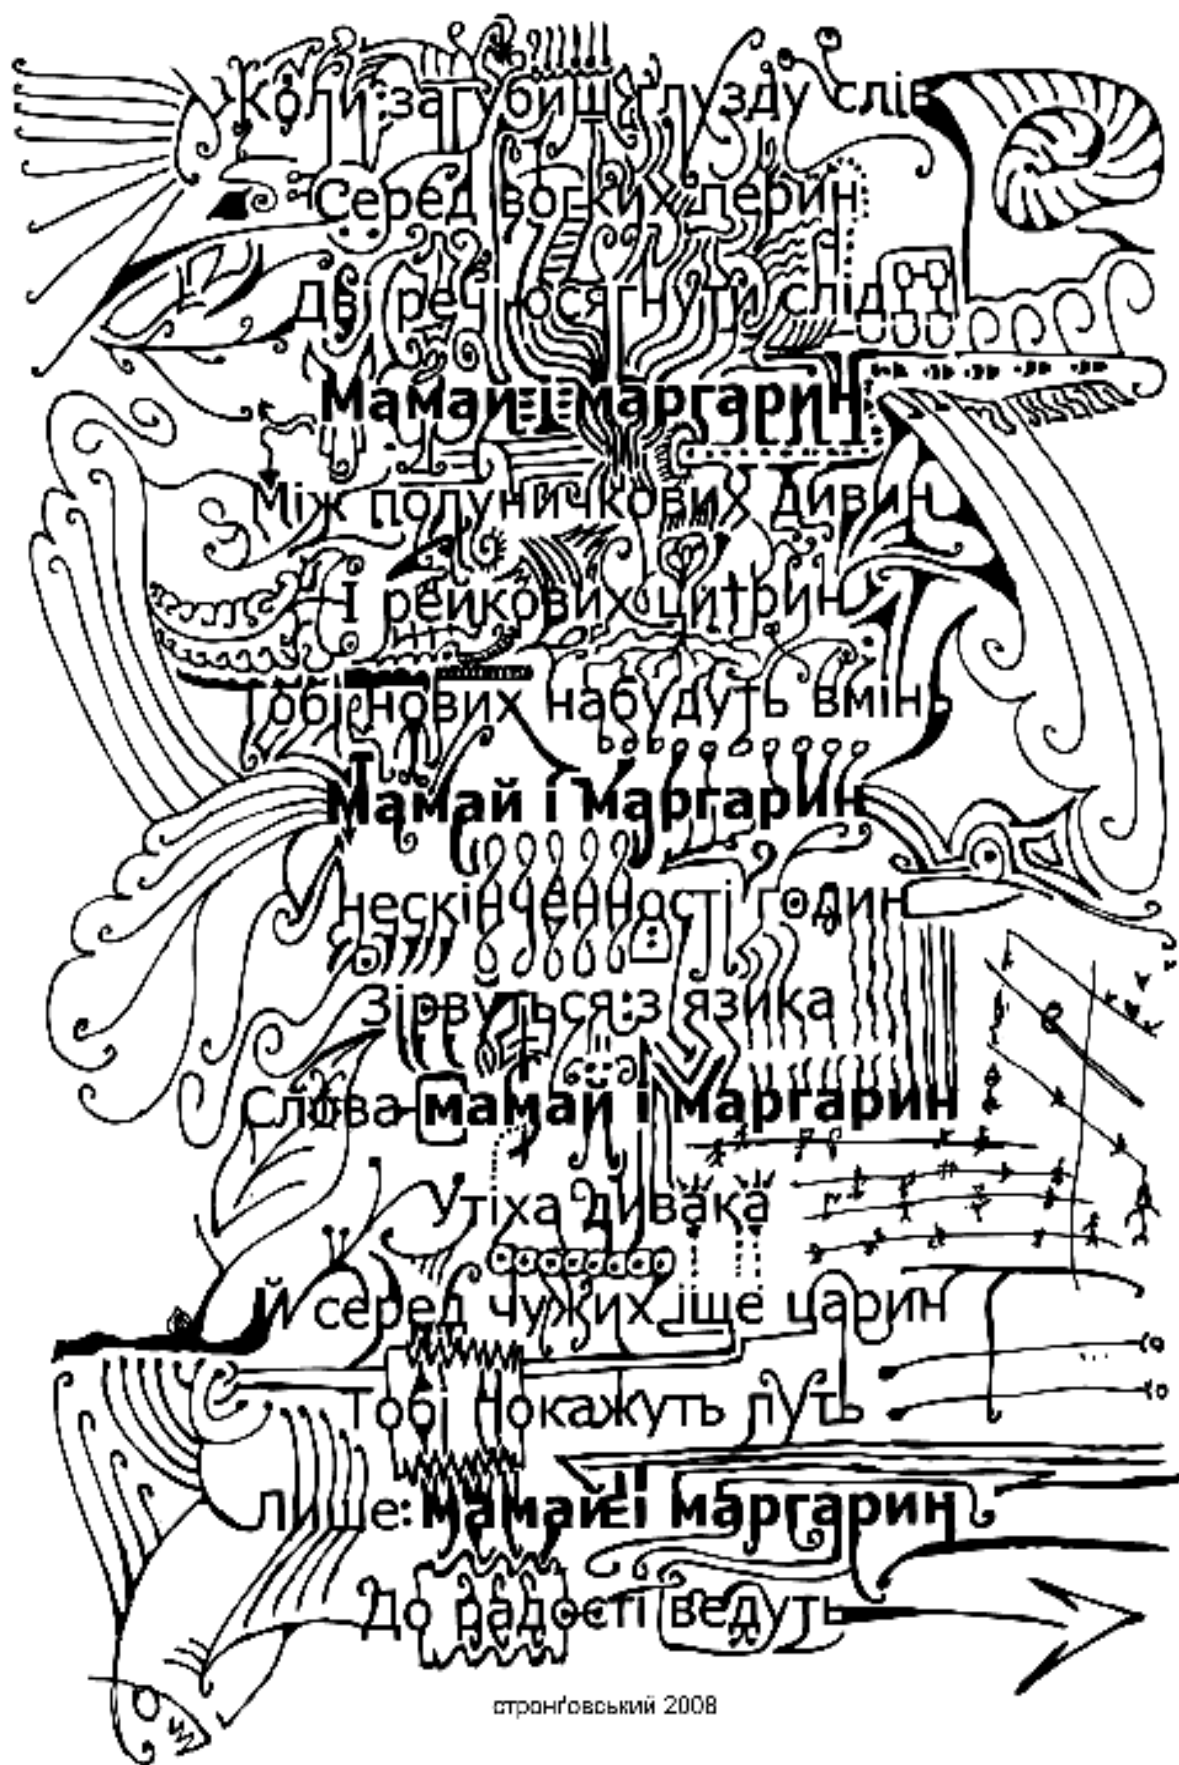 Коли загубиш глузду слів
Серед вогких перин
Дві речі осягнути слід
Мамай і маргарин
Між полуничкових дивин
І рейкових цитрин
Тобі нових набудуть вмінь
Мамай і маргарин
У нескінченності годин
Зірвуться з язика
Слова мамай і маргарин
Утіха дивака
Й серед чужих іще царин
Тобі покажуть путь
Лише: мамай і маргарин
До радості ведуть
стронґовський 2008